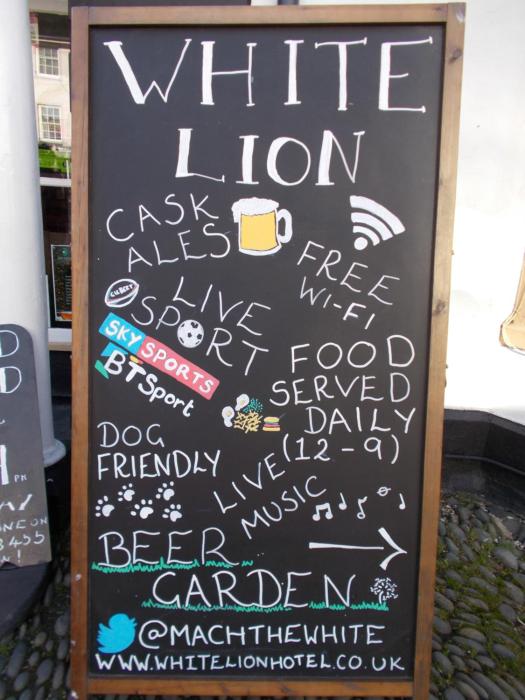 WHITE
LION
CASK
ALES
FREE
WI-FI
GILBERT
LIVE
SPORT
SKY SPORTS
BT Sport
FOOD
SERVED
DAILY
(12-9)
DOG
FRIENDLY
LIVE
MUSIC
BEER
GARDEN
@MACHTHEWHITE
WWW.WHITELIONHOTEL.CO.UK